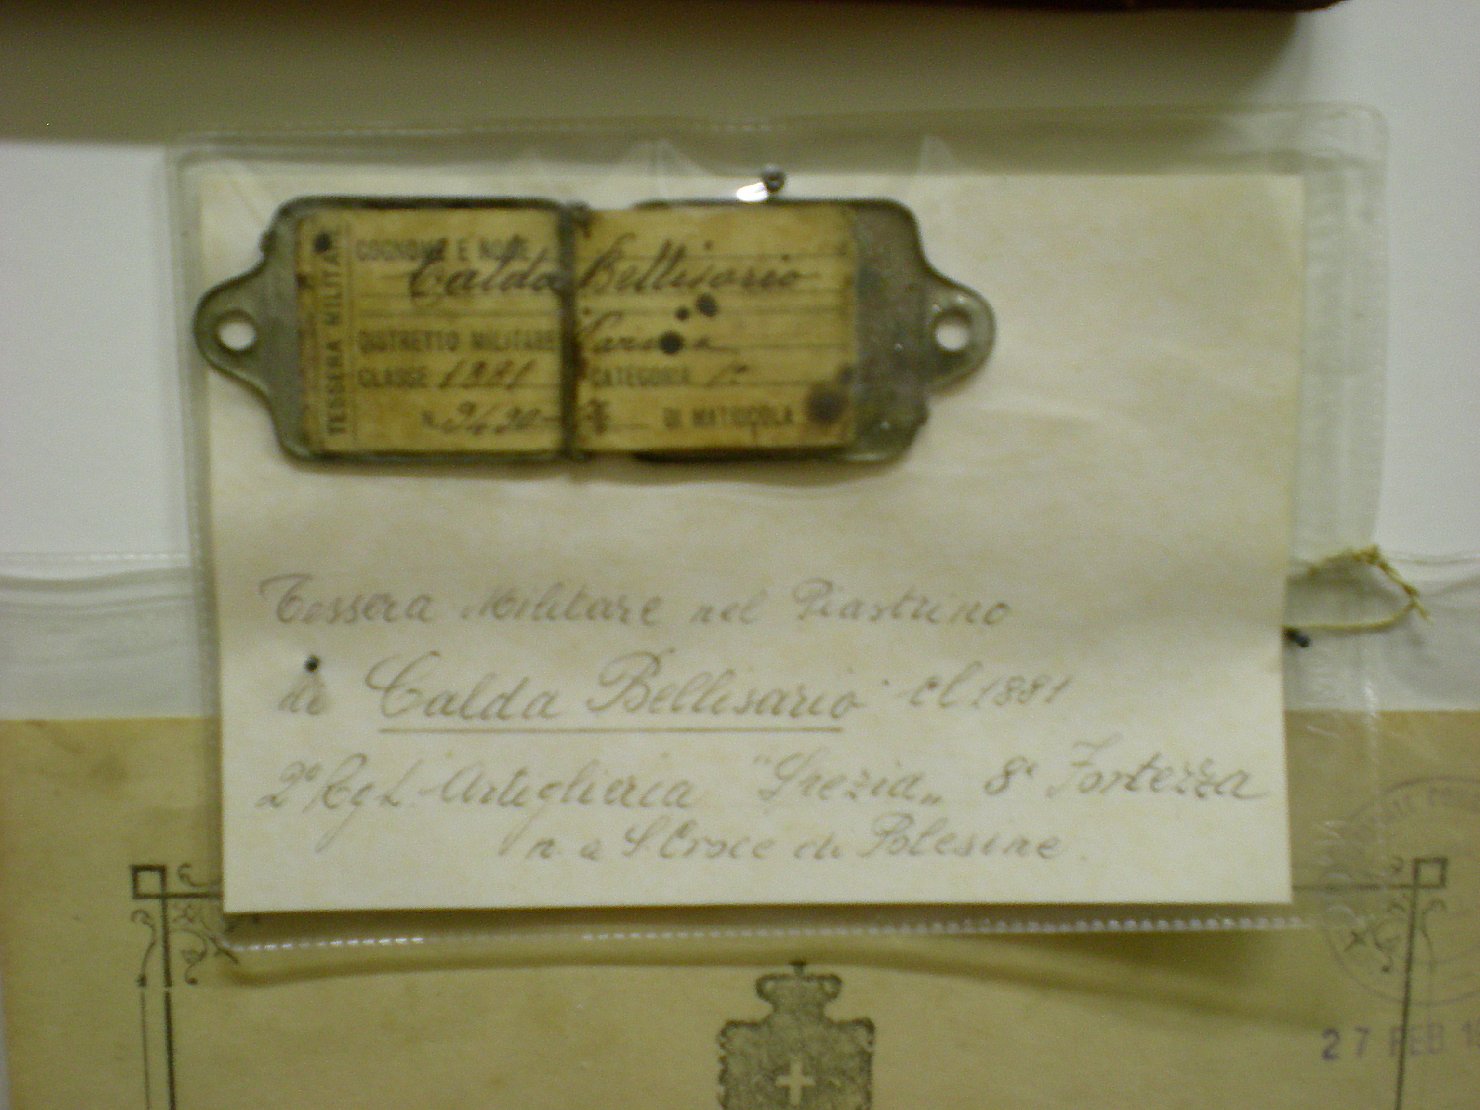 TESSERA MILITA
COGNOME E NOME
Calda Bellisario
DISTRETTO MILITARE
CLASSE 1881 CATEGORIA 1ª
N. DI MATRICOLA
Tessera Militare nel Piastrino
di Calda Bellisario cl 1881
2° Rgt. Artiglieria "Spezia„ 8ª Fortezza
n. a S. Croce di Polesine.
27 FEB 1